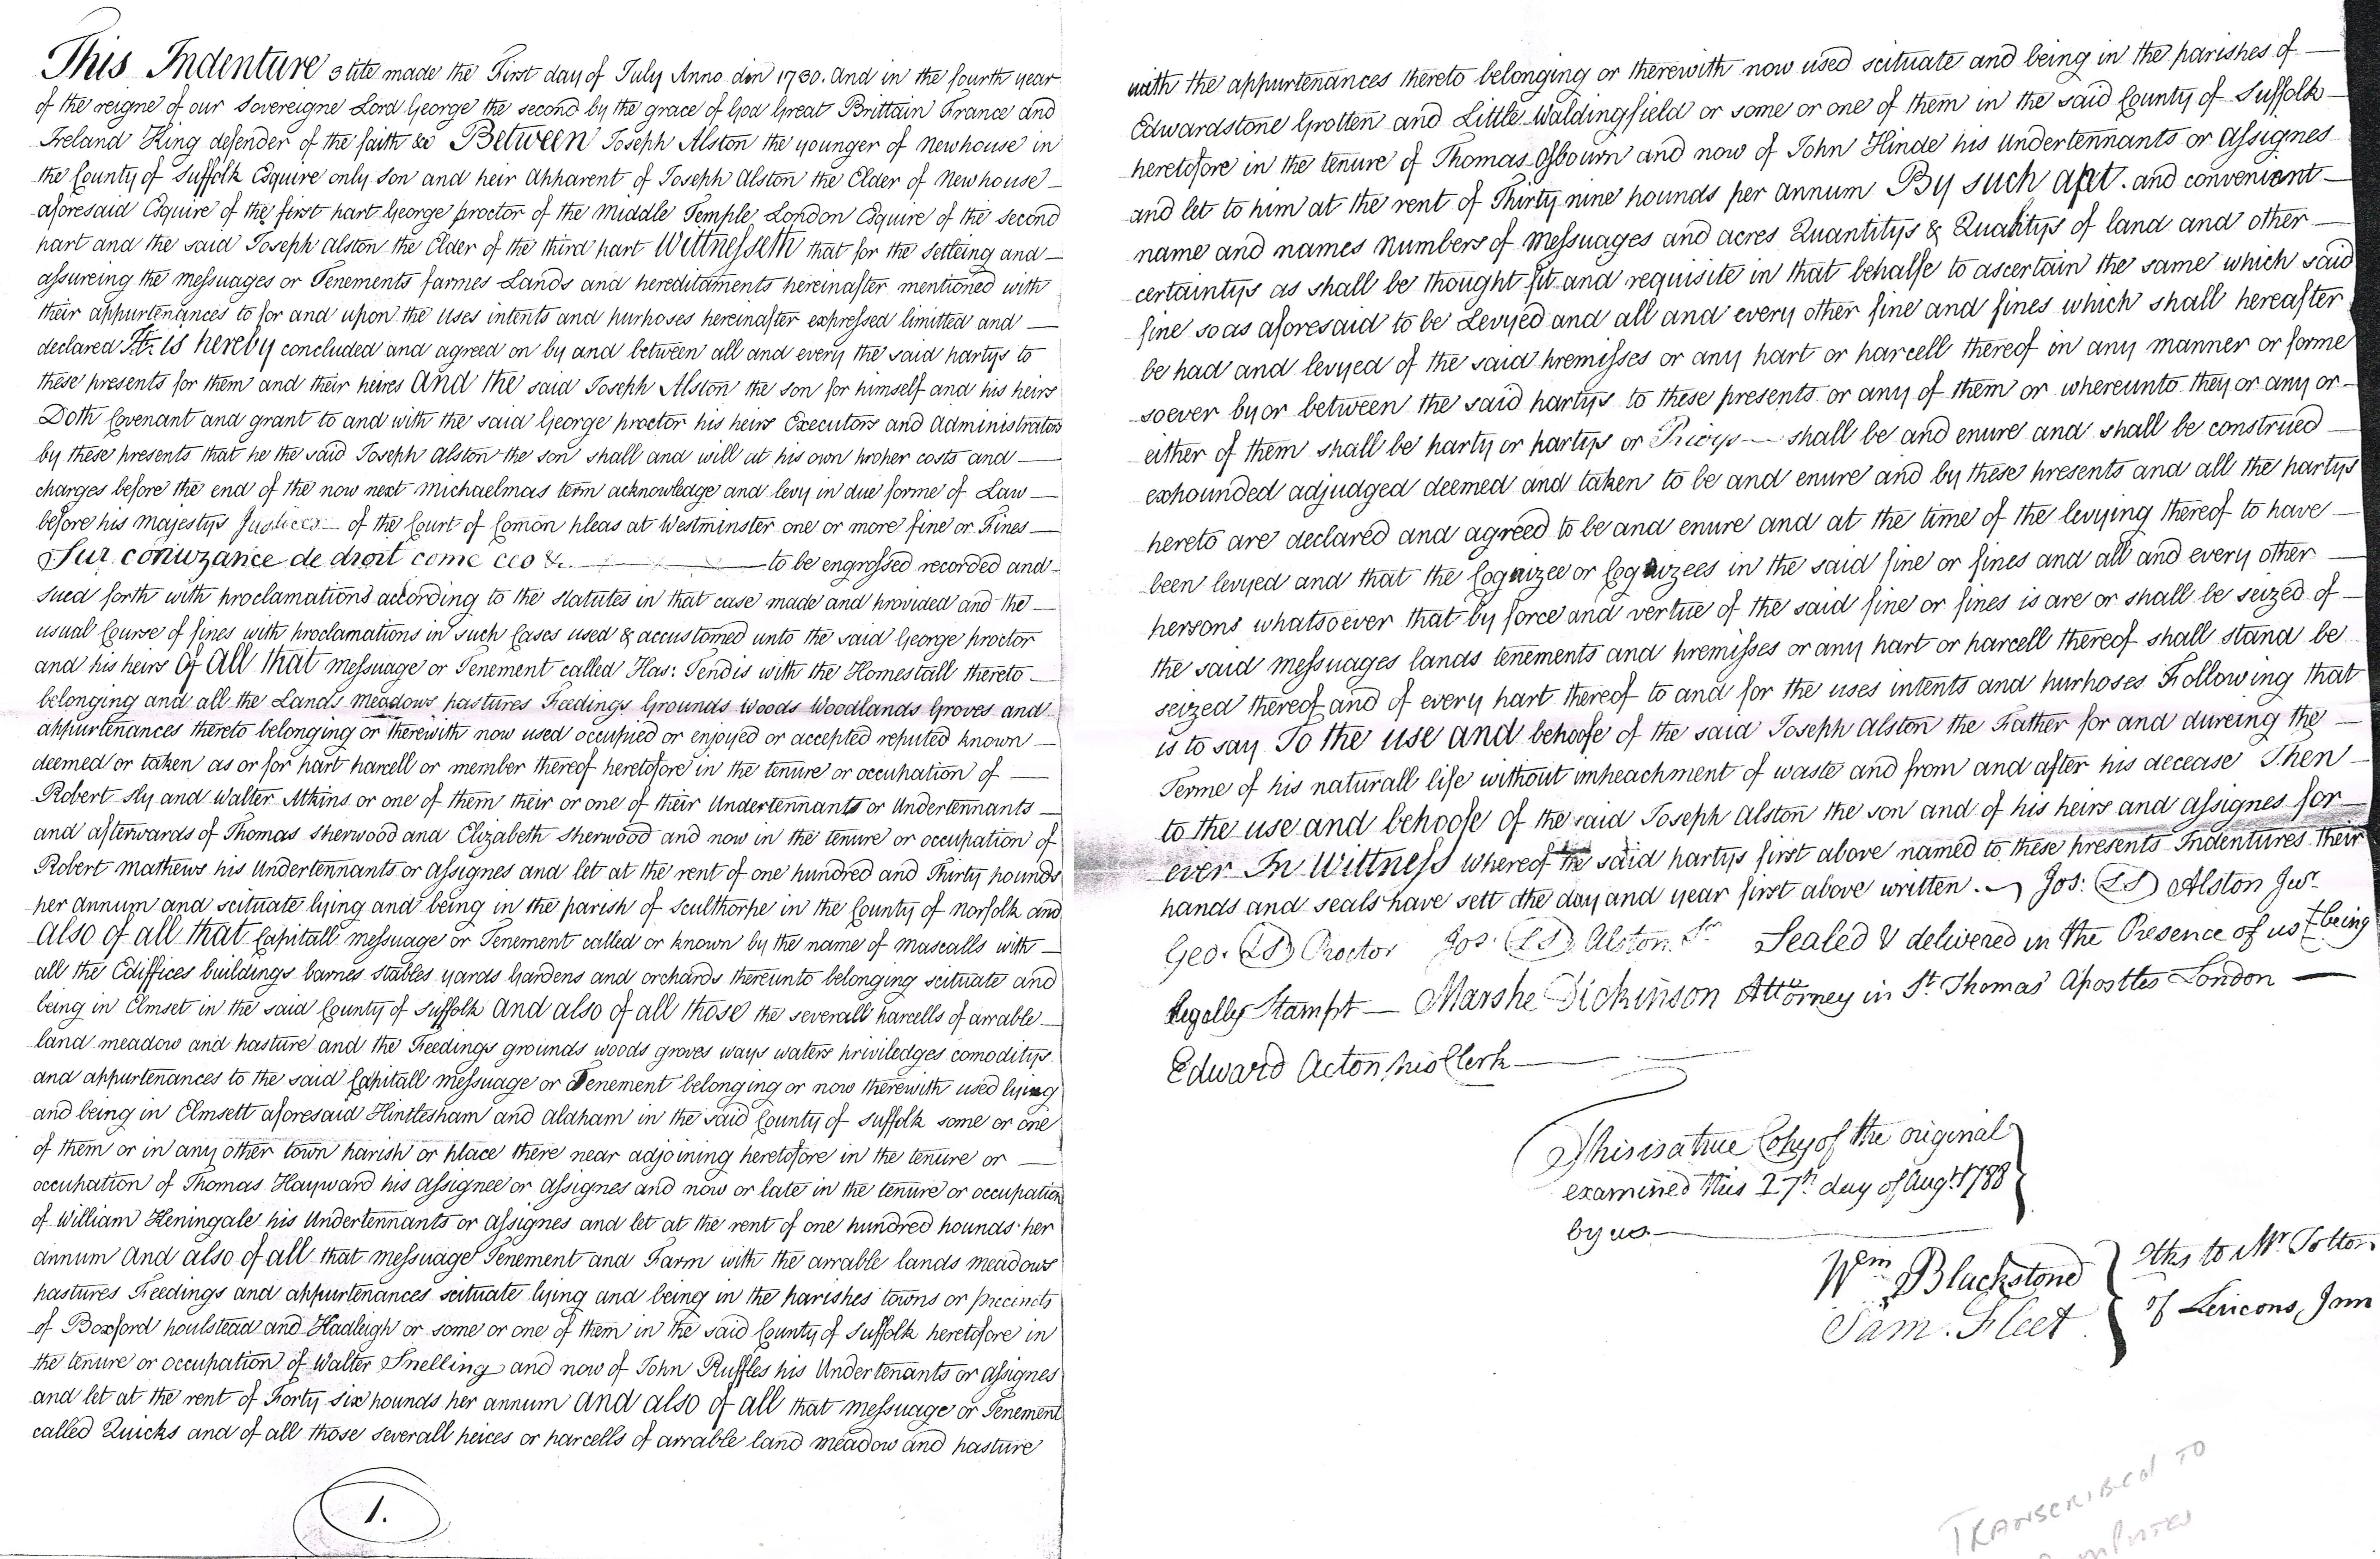 This Indenture 3 tite made the First day of July Anno din 1730. And in the fourth year
of the reigne of our Sovereigne Lord George the second by the grace of God Great Brittain France and
Ireland King defender of the faith &c Between Joseph Alston the younger of Newhouse in
the County of Suffolk Esquire only son and heir Apparent of Joseph Alston the Elder of Newhouse
aforesaid Esquire of the first part George proctor of the Middle Temple London Esquire of the second
part and the said Joseph Alston the Elder of the third part Wittnesseth that for the Setleing and
assureing the Messuages or Tenements farmes Lands and hereditaments hereinafter mentioned with
their appurtenances to for and upon the uses intents and purposes hereinafter expressed limitted and
declared It is hereby concluded and agreed on by and between all and every the said partys to
these presents for them and their heires And the said Joseph Alston the son for himself and his heirs
Doth Covenant and grant to and with the said George proctor his heirs Executors and Administrators
by these presents that he the said Joseph Alston the son shall and will at his own proper costs and
charges before the end of the now next Michaelmas term acknowledge and levy in due forme of Law
before his Majestys Justices of the Court of Comon pleas at Westminster one or more fine or Fines
Sur conuzance de droit come ceo &c. to be engrossed recorded and
sued forth with proclamations according to the statutes in that case made and provided and the
usual Course of fines with proclamations in such Cases used & accustomed unto the said George proctor
and his heirs Of all that messuage or Tenement called Has: Tendis with the Homestall thereto
belonging and all the Lands meadows pastures Feedings Grounds Woods Woodlands Groves and
appurtenances thereto belonging or therewith now used occupied or enjoyed or accepted reputed known
deemed or taken as or for part parcell or member thereof heretofore in the tenure or occupation of
Robert Sly and Walter Atkins or one of them their or one of their Undertennants or Undertennants
and afterwards of Thomas Sherwood and Elizabeth Sherwood and now in the tenure or occupation of
Robert Mathews his Undertennants or Assignes and let at the rent of one hundred and Thirty pounds
per annum and scituate lying and being in the parish of Sculthorpe in the County of Norfolk and
also of all that Capitall messuage or Tenement called or known by the name of Mascalls with
all the Ediffices buildings barnes stables yards Gardens and orchards thereunto belonging scituate and
being in Elmset in the said County of Suffolk and also of all those the severall parcells of arrable
land meadow and pasture and the Feedings grounds woods groves ways waters priviledges comoditys
and appurtenances to the said Capitall messuage or Tenement belonging or now therewith used lying
and being in Elmsett aforesaid Hintlesham and Aldham in the said County of Suffolk some or one
of them or in any other town parish or place there near adjoining heretofore in the tenure or
occupation of Thomas Hayward his Assignee or Assignes and now or late in the tenure or occupation
of William Heningale his Undertennants or Assignes and let at the rent of one hundred pounds per
annum And also of all that messuage Tenement and Farm with the arrable lands meadows
pastures Feedings and appurtenances scituate lying and being in the parishes towns or precincts
of Boxford poulstead and Hadleigh or some or one of them in the said County of Suffolk heretofore in
the tenure or occupation of Walter Snelling and now of John Ruffles his Undertenants or Assignes
and let at the rent of Forty six pounds per annum And also of all that messuage or Tenement
called Quicks and of all those severall peices or parcells of arrable land meadow and pasture
1.
with the appurtenances thereto belonging or therewith now used scituate and being in the parishes of
Edwardstone Grotten and Little Waldingfield or some or one of them in the said County of Suffolk
heretofore in the tenure of Thomas Osbourn and now of John Hinde his Undertennants or Assignes
and let to him at the rent of Thirty nine pounds per annum By such apt. and convenient
name and names numbers of messuages and acres Quantitys & Qualitys of land and other
certaintys as shall be thought fit and requisite in that behalfe to ascertain the same which said
fine so as aforesaid to be Levyed and all and every other fine and fines which shall hereafter
be had and levyed of the said premisses or any part or parcell thereof in any manner or forme
soever by or between the said partys to these presents or any of them or whereunto they or any or
either of them shall be party or partys or Privys shall be and enure and shall be construed
expounded adjudged deemed and taken to be and enure and by these presents and all the partys
hereto are declared and agreed to be and enure and at the time of the levying thereof to have
been levyed and that the Cognizee or Cognizees in the said fine or fines and all and every other
persons whatsoever that by force and vertue of the said fine or fines is are or shall be seized of
the said messuages lands tenements and premisses or any part or parcell thereof shall stand be
seized thereof and of every part thereof to and for the uses intents and purposes Following that
is to say To the use and behoofe of the said Joseph Alston the Father for and dureing the
Terme of his naturall life without impeachment of waste and from and after his decease Then
to the use and behoofe of the said Joseph Alston the son and of his heirs and assignes for
ever In Wittness whereof the said partys first above named to these presents Indentures their
hands and seals have sett the day and year first above written. Jos: (LS) Alston Junr.
Geo. (LS) Proctor Jos. (LS) Alston Sr Sealed & delivered in the Presence of us being
legally Stampt — Marshe Dickinson Attorney in St. Thomas Apostles London
Edward Acton his Clerk
This is a true Copy of the original
examined this 27th day of Augt. 1788
by us
Wm Blackstone
Sam. Fleet
to Mr
of
TRANSCRIBED TO